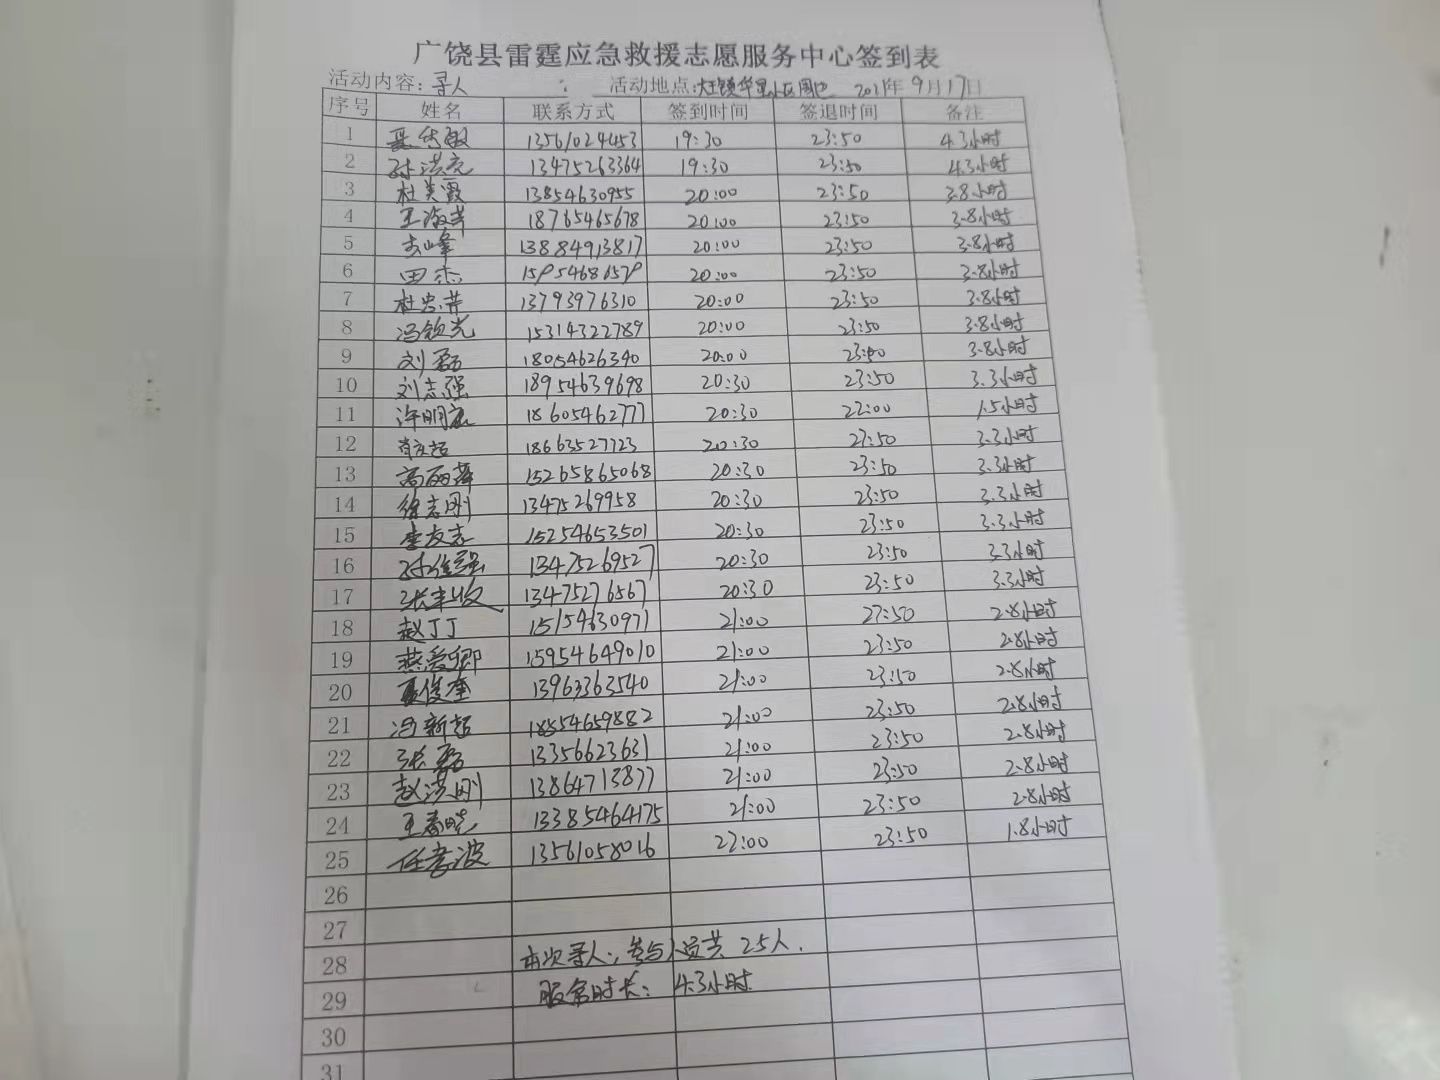 广饶县雷霆应急救援志愿服务中心签到表
活动内容：寻人 活动地点：大王镇华星小区周边 2021年9月17日
序号 姓名 联系方式 签到时间 签退时间 备注
1 13561024453 19:30 23:50 4.3小时
2 孙洪亮 13475263364 19:30 23:50 4.3小时
3 杜美霞 13854630955 20:00 23:50 3.8小时
4 王海燕 18765465678 20:00 23:50 3.8小时
5 13884913817 20:00 23:50 3.8小时
6 田杰 20:00 23:50 3.8小时
7 13793976310 20:00 23:50 3.8小时
8 冯钦光 15314322789 20:00 23:50 3.8小时
9 刘磊 18054626390 20:00 23:50 3.8小时
10 刘志强 18954639698 20:30 23:50 3.3小时
11 18605462777 20:30 22:00 1.5小时
12 18663527723 20:30 23:50 3.3小时
13 高丽萍 15265865068 20:30 23:50 3.3小时
14 徐志刚 13475269958 20:30 23:50 3.3小时
15 李友志 15254653501 20:30 23:50 3.3小时
16 13475269527 20:30 23:50 3.3小时
17 张丰收 13475276567 20:30 23:50 3.3小时
18 赵丁丁 15154630971 21:00 23:50 2.8小时
19 燕爱卿 15954649010 21:00 23:50 2.8小时
20 聂俊奎 13963363540 21:00 23:50 2.8小时
21 冯新超 18554659882 21:00 23:50 2.8小时
22 张磊 13356623631 21:00 23:50 2.8小时
23 赵洪刚 13864713877 21:00 23:50 2.8小时
24 王春晓 13385464175 21:00 23:50 2.8小时
25 任孝波 13561058016 22:00 23:50 1.8小时
26
27
28 本次寻人，参与人员共25人.
29 服务时长：4.3小时
30
31